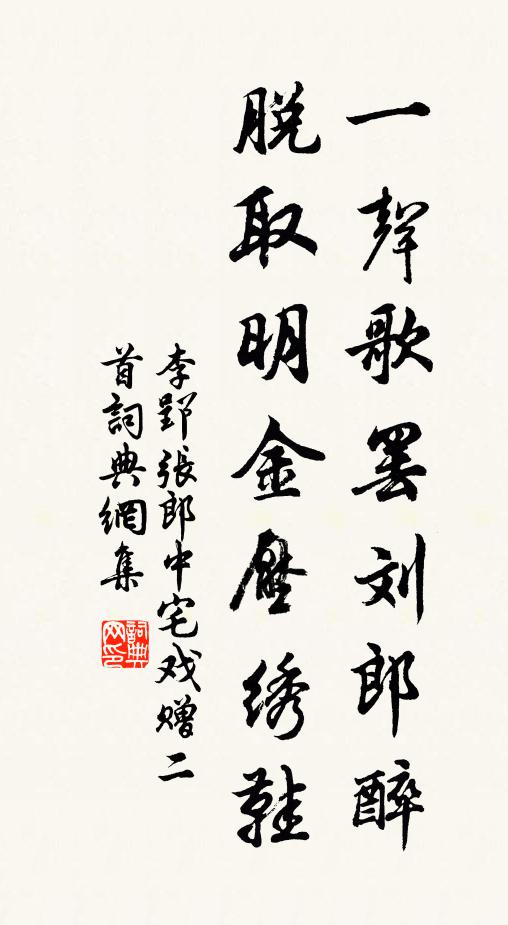 一聲歌罢刘郎醉
脱取明金壓绣鞋
李郢張郎中宅戏赠二
首詞典網集
詞典网印